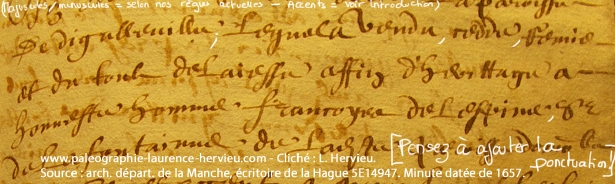 (Majuscules / minuscules = selon nos règles actuelles - Accents = voir introduction)
De digulleville, Lequel a vendu, cedde, remis
et du tout delaissé affin d'herittage a
honneste homme francoyse de lespine, sr
de la fontainne, de
[Pensez à ajouter la
ponctuation]
www.paleographie-laurence-hervieu.com - Cliché : L. Hervieu.
Source : arch. départ. de la Manche, écritoire de la Hague 5E14947. Minute datée de 1657.